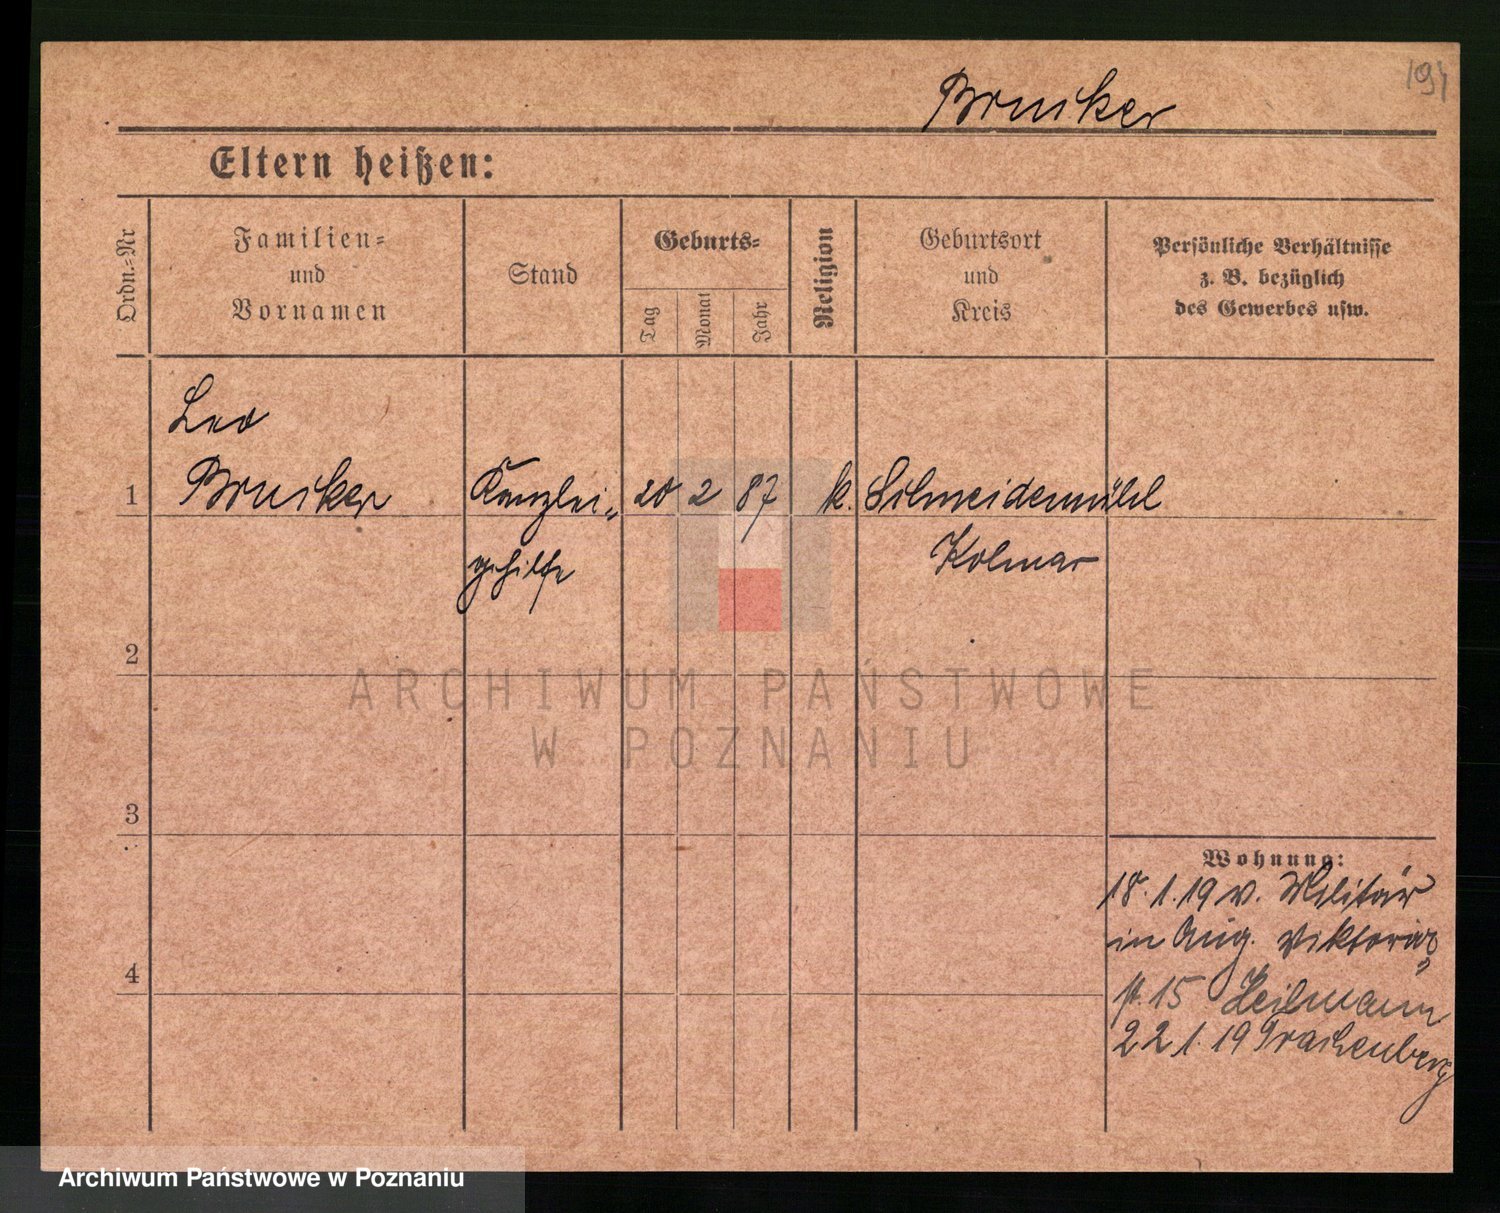 191
Brusker
Eltern heißen:
Ordn.=Nr
Familien=
und
Vornamen
Stand
Geburts=
Tag
Monat
Jahr
Religion
Geburtsort
und
Kreis
Persönliche Verhältnisse
z. B. bezüglich
des Gewerbes usw.
Leo
1 Brusker Kanzlei= 20 2 87 k. Schneidemühl
gehilfe Kolmar
2
ARCHIWUM PAŃSTWOWE
W POZNANIU
3
Wohnung:
18.1.19 v. Militär
in Aug. Viktoria
4
st. 15 Heilmann
22.1.19 Trachenberg
Archiwum Państwowe w Poznaniu